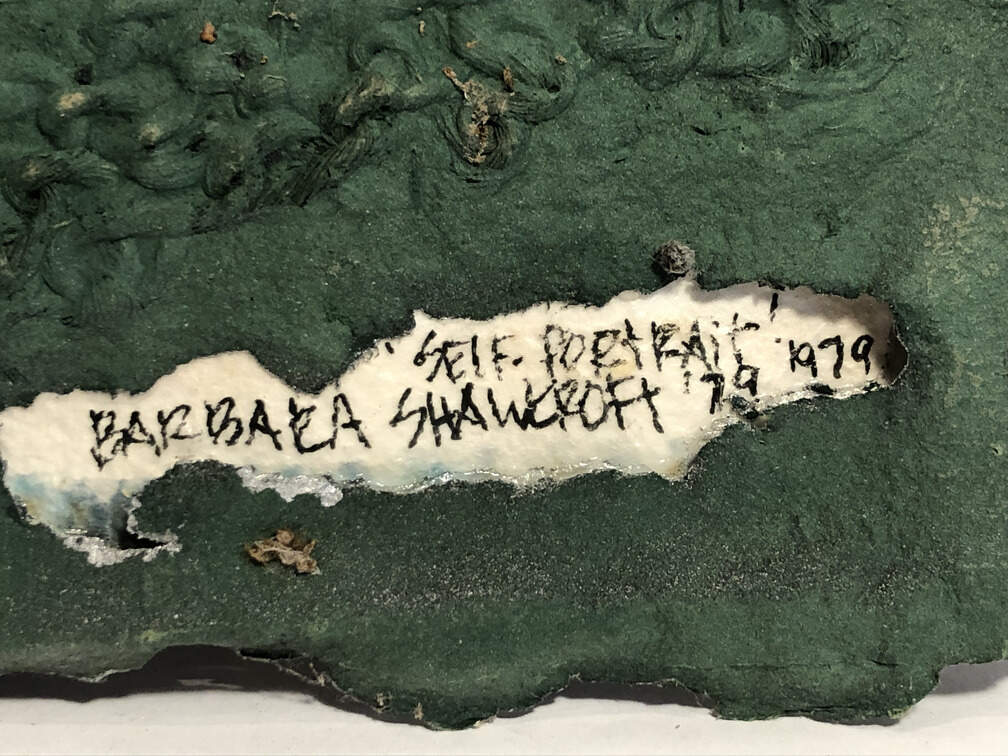 'SELF. PORTRAIT' 1979
BARBARA SHAWCROFT '79